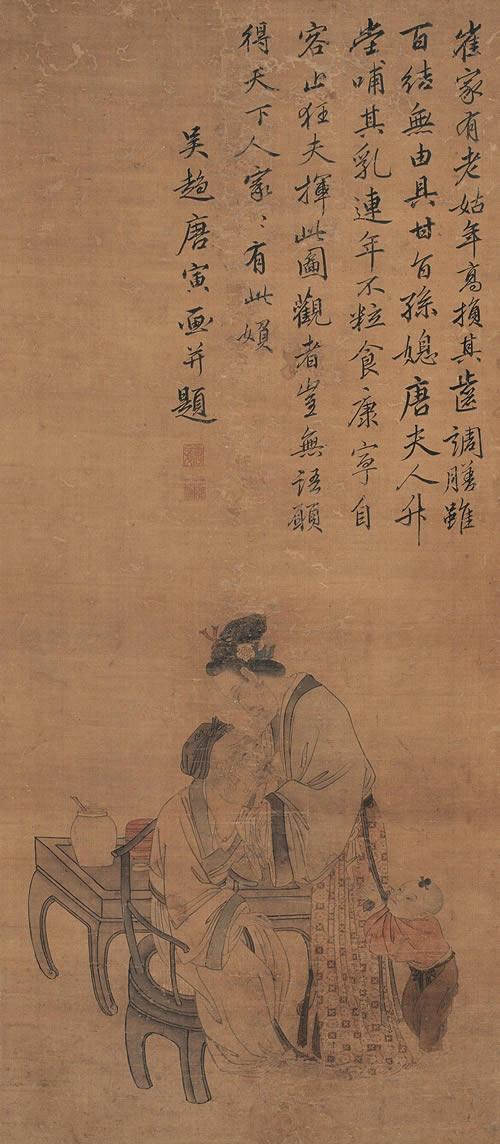 崔家有老姑年高損其齒調膳雖
百結無由具甘旨孫媳唐夫人升
堂哺其乳連年不粒食康寧自
容止狂夫揮此圖觀者豈無語願
得天下人家〻有此婦
吳趨唐寅画并題